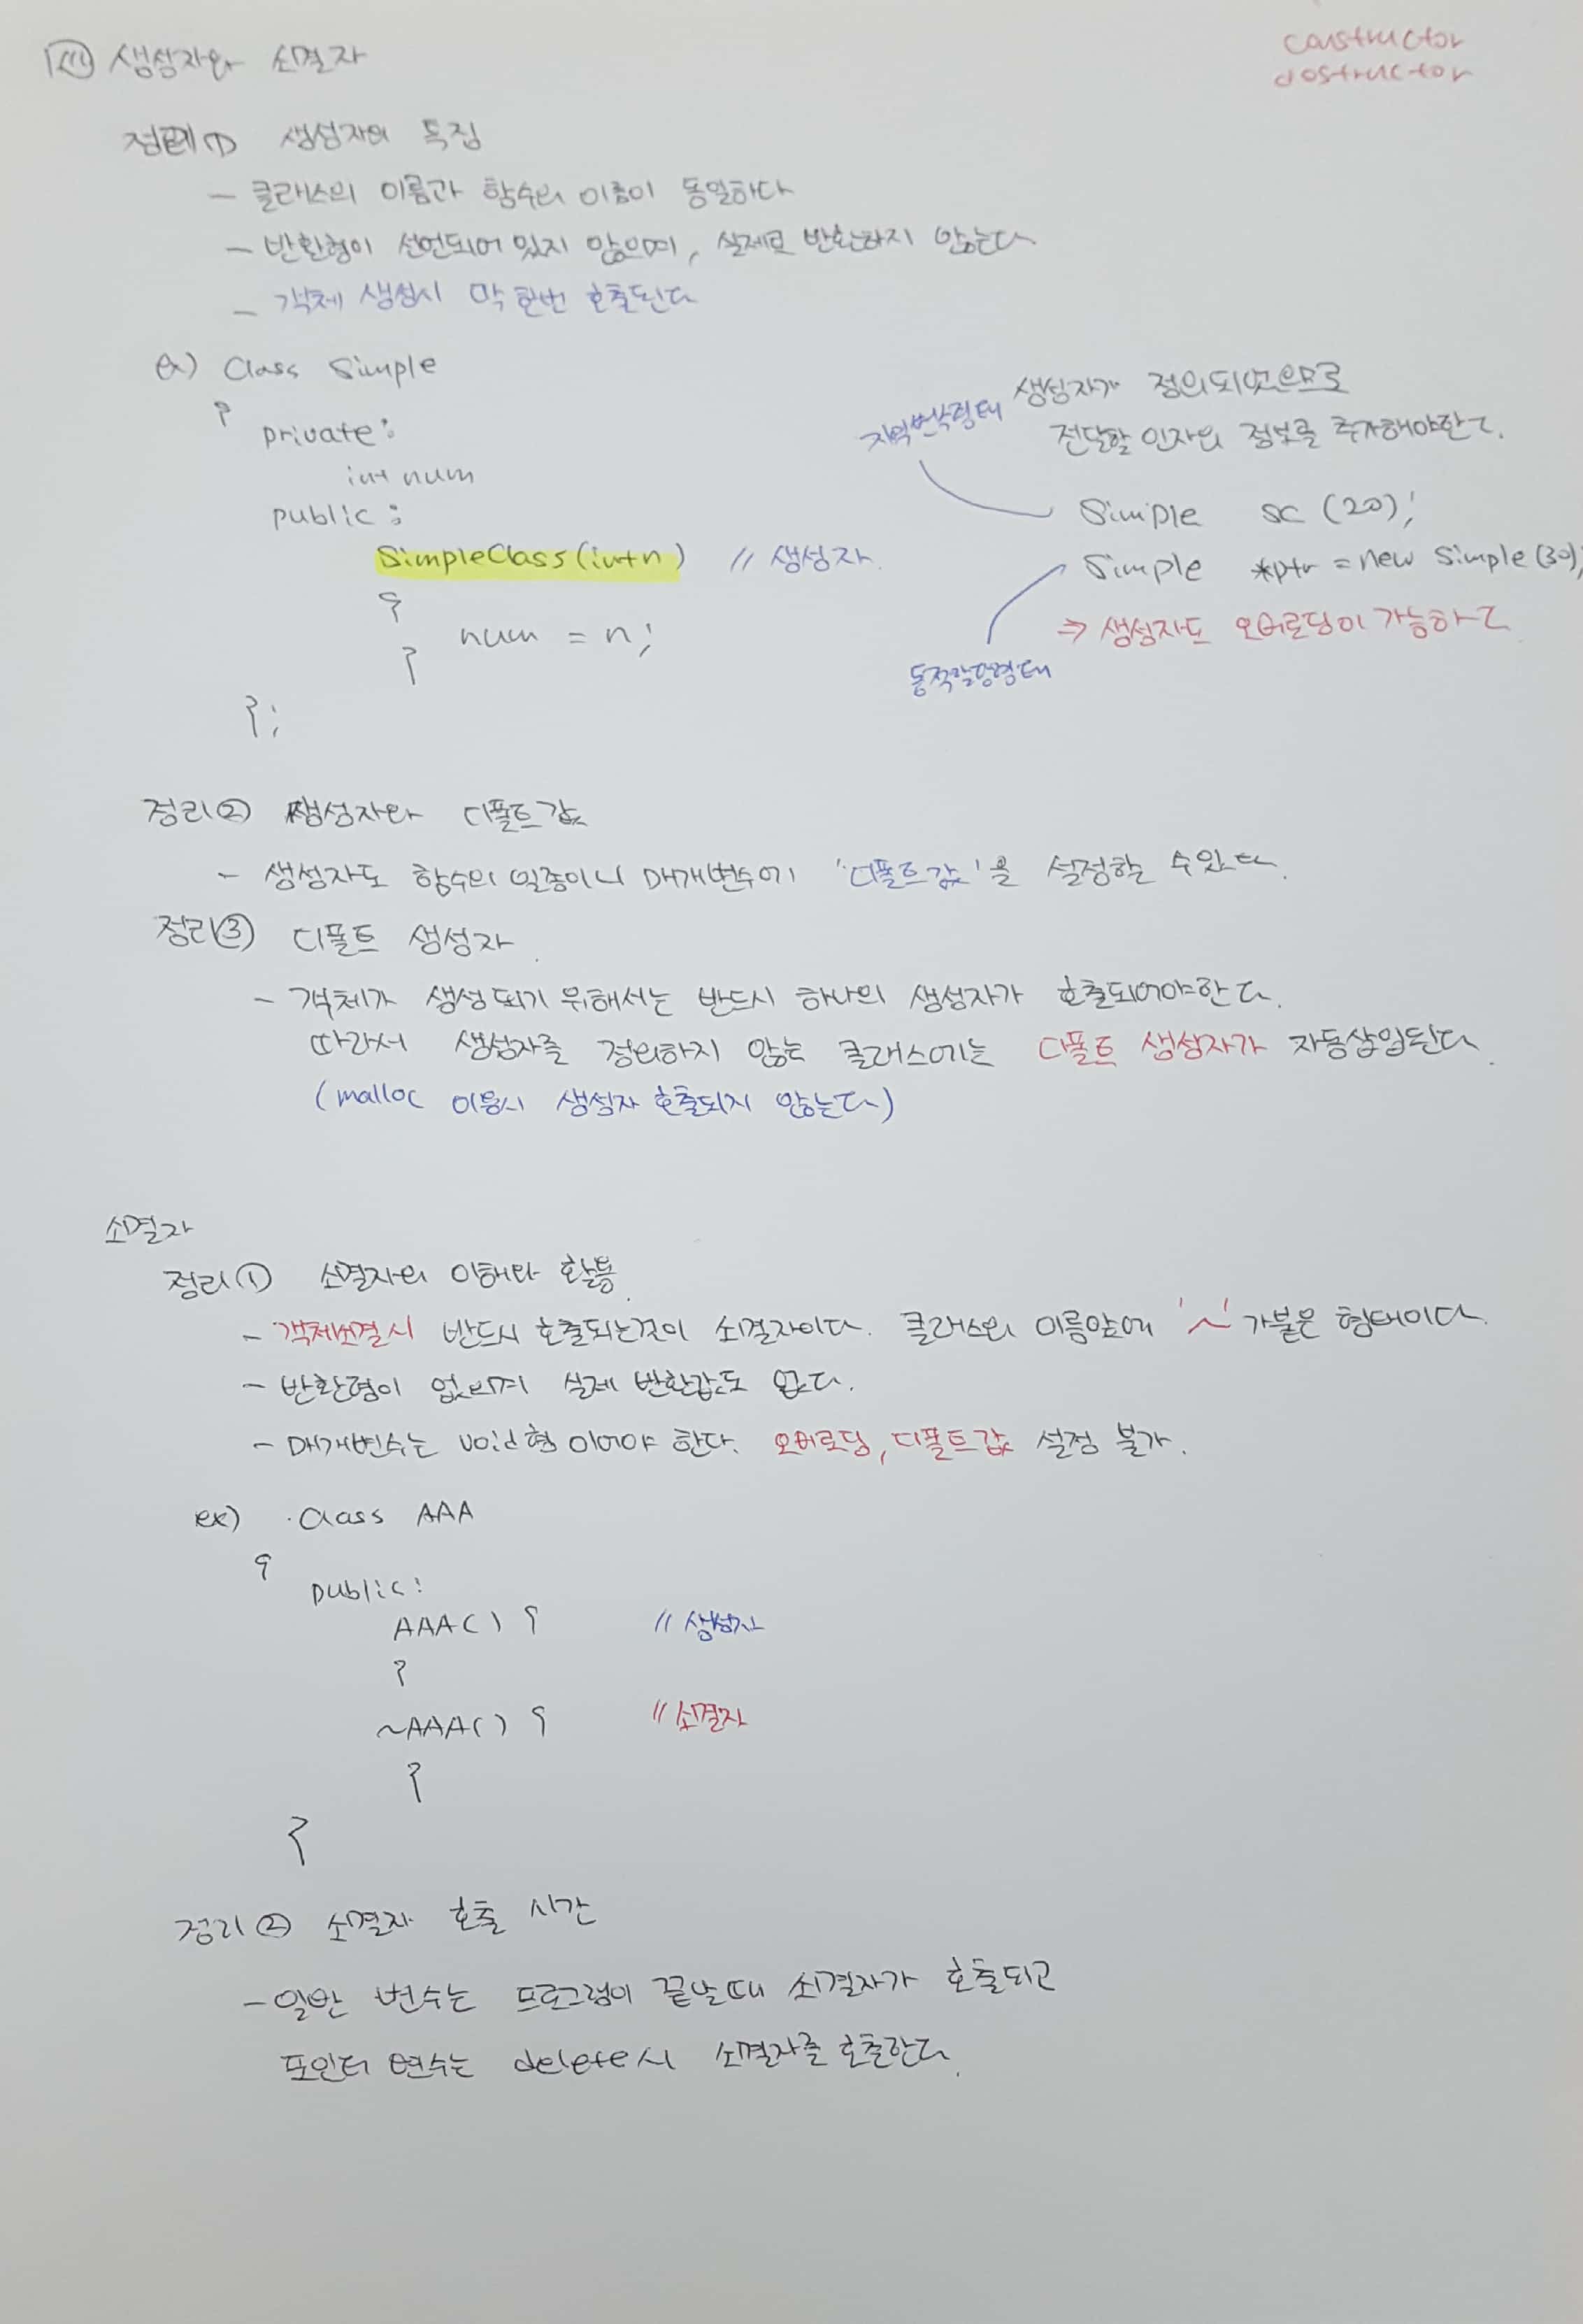 생성자와 소멸자
constructor
destructor
정리① 생성자의 특징
- 클래스의 이름과 함수의 이름이 동일하다
- 반환형이 선언되어 있지 않으며, 실제로 반환하지 않는다
- 객체 생성시 딱 한번 호출된다
ex) Class Simple
{
private:
int num
public:
SimpleClass(int n) // 생성자
{
num = n;
}
};
생성자가 정의되었으므로
전달할 인자의 정보를 추가해야한다.
지역변수형태
Simple sc (20);
Simple *ptr = new Simple(30);
동적할당형태
⇒ 생성자도 오버로딩이 가능하다
정리② 생성자와 디폴트값
- 생성자도 함수의 일종이니 매개변수에 '디폴트값'을 설정할 수있다.
정리③ 디폴트 생성자
- 객체가 생성되기 위해서는 반드시 하나의 생성자가 호출되어야한다.
따라서 생성자를 정의하지 않는 클래스에는 디폴트 생성자가 자동삽입된다.
(malloc 이용시 생성자 호출되지 않는다)
소멸자
정리① 소멸자의 이해와 활용
- 객체소멸시 반드시 호출되는것이 소멸자이다. 클래스의 이름앞에 '~'가붙은 형태이다.
- 반환형이 없으며 실제 반환값도 없다.
- 매개변수는 void형 이어야 한다. 오버로딩, 디폴트값 설정 불가.
ex) Class AAA
{
public:
AAA() { // 생성자
}
~AAA() { // 소멸자
}
}
정리② 소멸자 호출 시간
- 일반 변수는 프로그램이 끝날때 소멸자가 호출되고
포인터 변수는 delete시 소멸자를 호출한다.